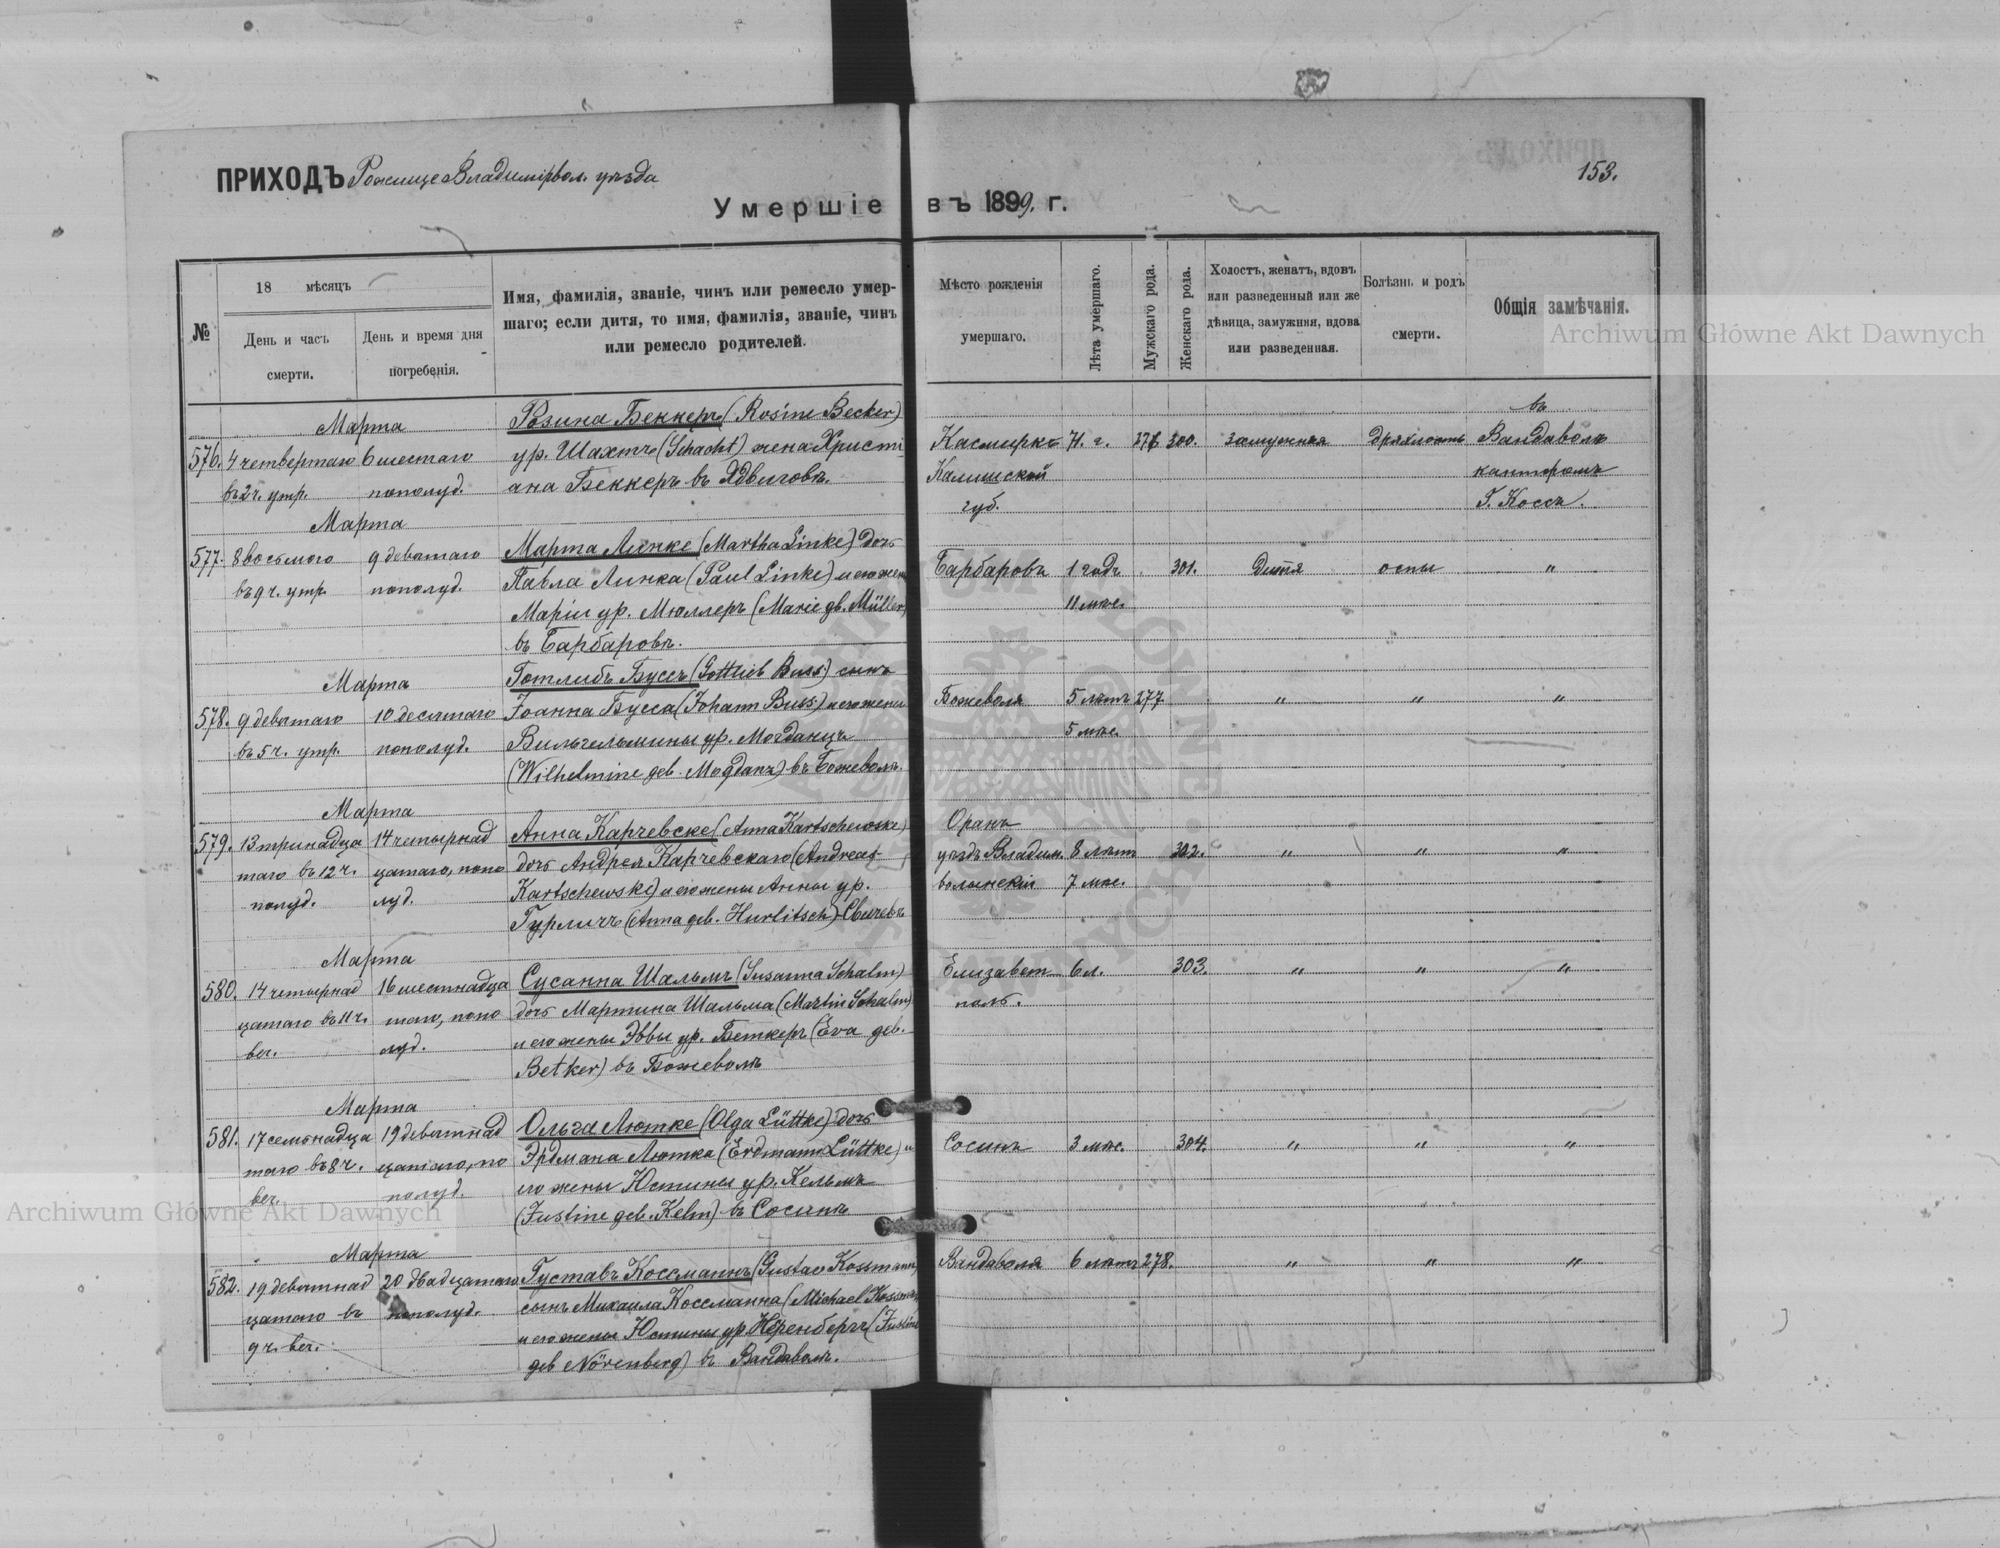 ПРИХОДЪ Рожище Владимірвол. уѣзда
153.
Умершіе въ 1899. г.
№
18 мѣсяцъ
День и часъ смерти.
День и время дня погребенія.
Имя, фамилія, званіе, чинъ или ремесло умер-
шаго; если дитя, то имя, фамилія, званіе, чинъ
или ремесло родителей.
Мѣсто рожденія
умершаго.
Лѣта умершаго.
Мужскаго рода.
Женскаго рода.
Холостъ, женатъ, вдовъ
или разведенный или же
дѣвица, замужняя, вдова
или разведенная.
Болѣзнь и родъ
смерти.
Общія замѣчанія.
Archiwum Główne Akt Dawnych
Марта
576. 4 четвертаго
въ 2 ч. утр.
6 шестаго
пополуд.
Розина Беккеръ (Rosine Becker)
ур. Шахтъ (Schacht) жена Христі
ана Беккеръ въ Ядвиговѣ.
Калишской
губ.
71. г.
300.
замужняя
дряхлость
въ
Вандаволѣ
канторомъ
Г. Коссъ.
Марта
577. 8 восьмого
въ 9 ч. утр.
9 девятаго
пополуд.
Марта Линке (Martha Linke) дочь
Павла Линка (Paul Linke) и его жен
Маріи ур. Мюллеръ (Marie geb. Müller)
въ Барбаровѣ.
Барбаровъ
1 годъ
11 мѣс.
301.
дитя
оспы
"
Марта
578. 9 девятаго
въ 5 ч. утр.
10 десятаго
пополуд.
Готлибъ Буссъ (Gottlieb Buss) сынъ
Іоанна Бусса (Johann Buss) и его жены
Вильгельмины ур. Могданцъ
(Wilhelmine geb. Mogdanz) въ Божеволѣ.
Божеволя
5 лѣтъ
5 мѣс.
277.
"
"
"
Марта
579. 13 тринадца
таго въ 12 ч.
полуд.
14 четырнад
цатаго, попо
луд.
Анна Карчевске (Anna Kartschewske)
дочь Андрея Карчевскаго (Andreas
Kartschewske) и его жены Анны ур.
Гурличъ (Anna geb. Hurlitsch)
уѣздъ Владим.
волынскій
8 лѣтъ
7 мѣс.
302.
"
"
"
Марта
580. 14 четырнад
цатаго въ 11 ч.
веч.
16 шестнадца
таго, попо
луд.
Сусанна Шальмъ (Susanna Schalm)
дочь Мартина Шальма (Martin Schalm)
и его жены Эввы ур. Беткеръ (Eva geb.
Betker) въ Божеволѣ
Елизавет
поль.
6 л.
303.
"
"
"
Марта
581. 17 семьнадца
таго въ 8 ч.
веч.
19 девятнад
цатаго, по
полуд.
Ольга Лютке (Olga Lüttke) дочь
Эрдмана Лютка (Erdmann Lüttke) и
его жены Юстины ур. Кельмъ
(Justine geb. Kelm) въ Сосинѣ
Сосинъ
3 мѣс.
304.
"
"
"
Archiwum Główne Akt Dawnych
Марта
582. 19 девятнад
цатаго въ
9 ч. веч.
20 двадцатаго
пополуд.
Густавъ Коссманнъ (Gustav Kossmann)
сынъ Михаила Коссманна (Michael Kossmann)
и его жены Юстины ур. Неренбергъ (Justine
geb. Nörenberg) въ Вандаволѣ.
Вандаволя
6 лѣтъ
278.
"
"
"